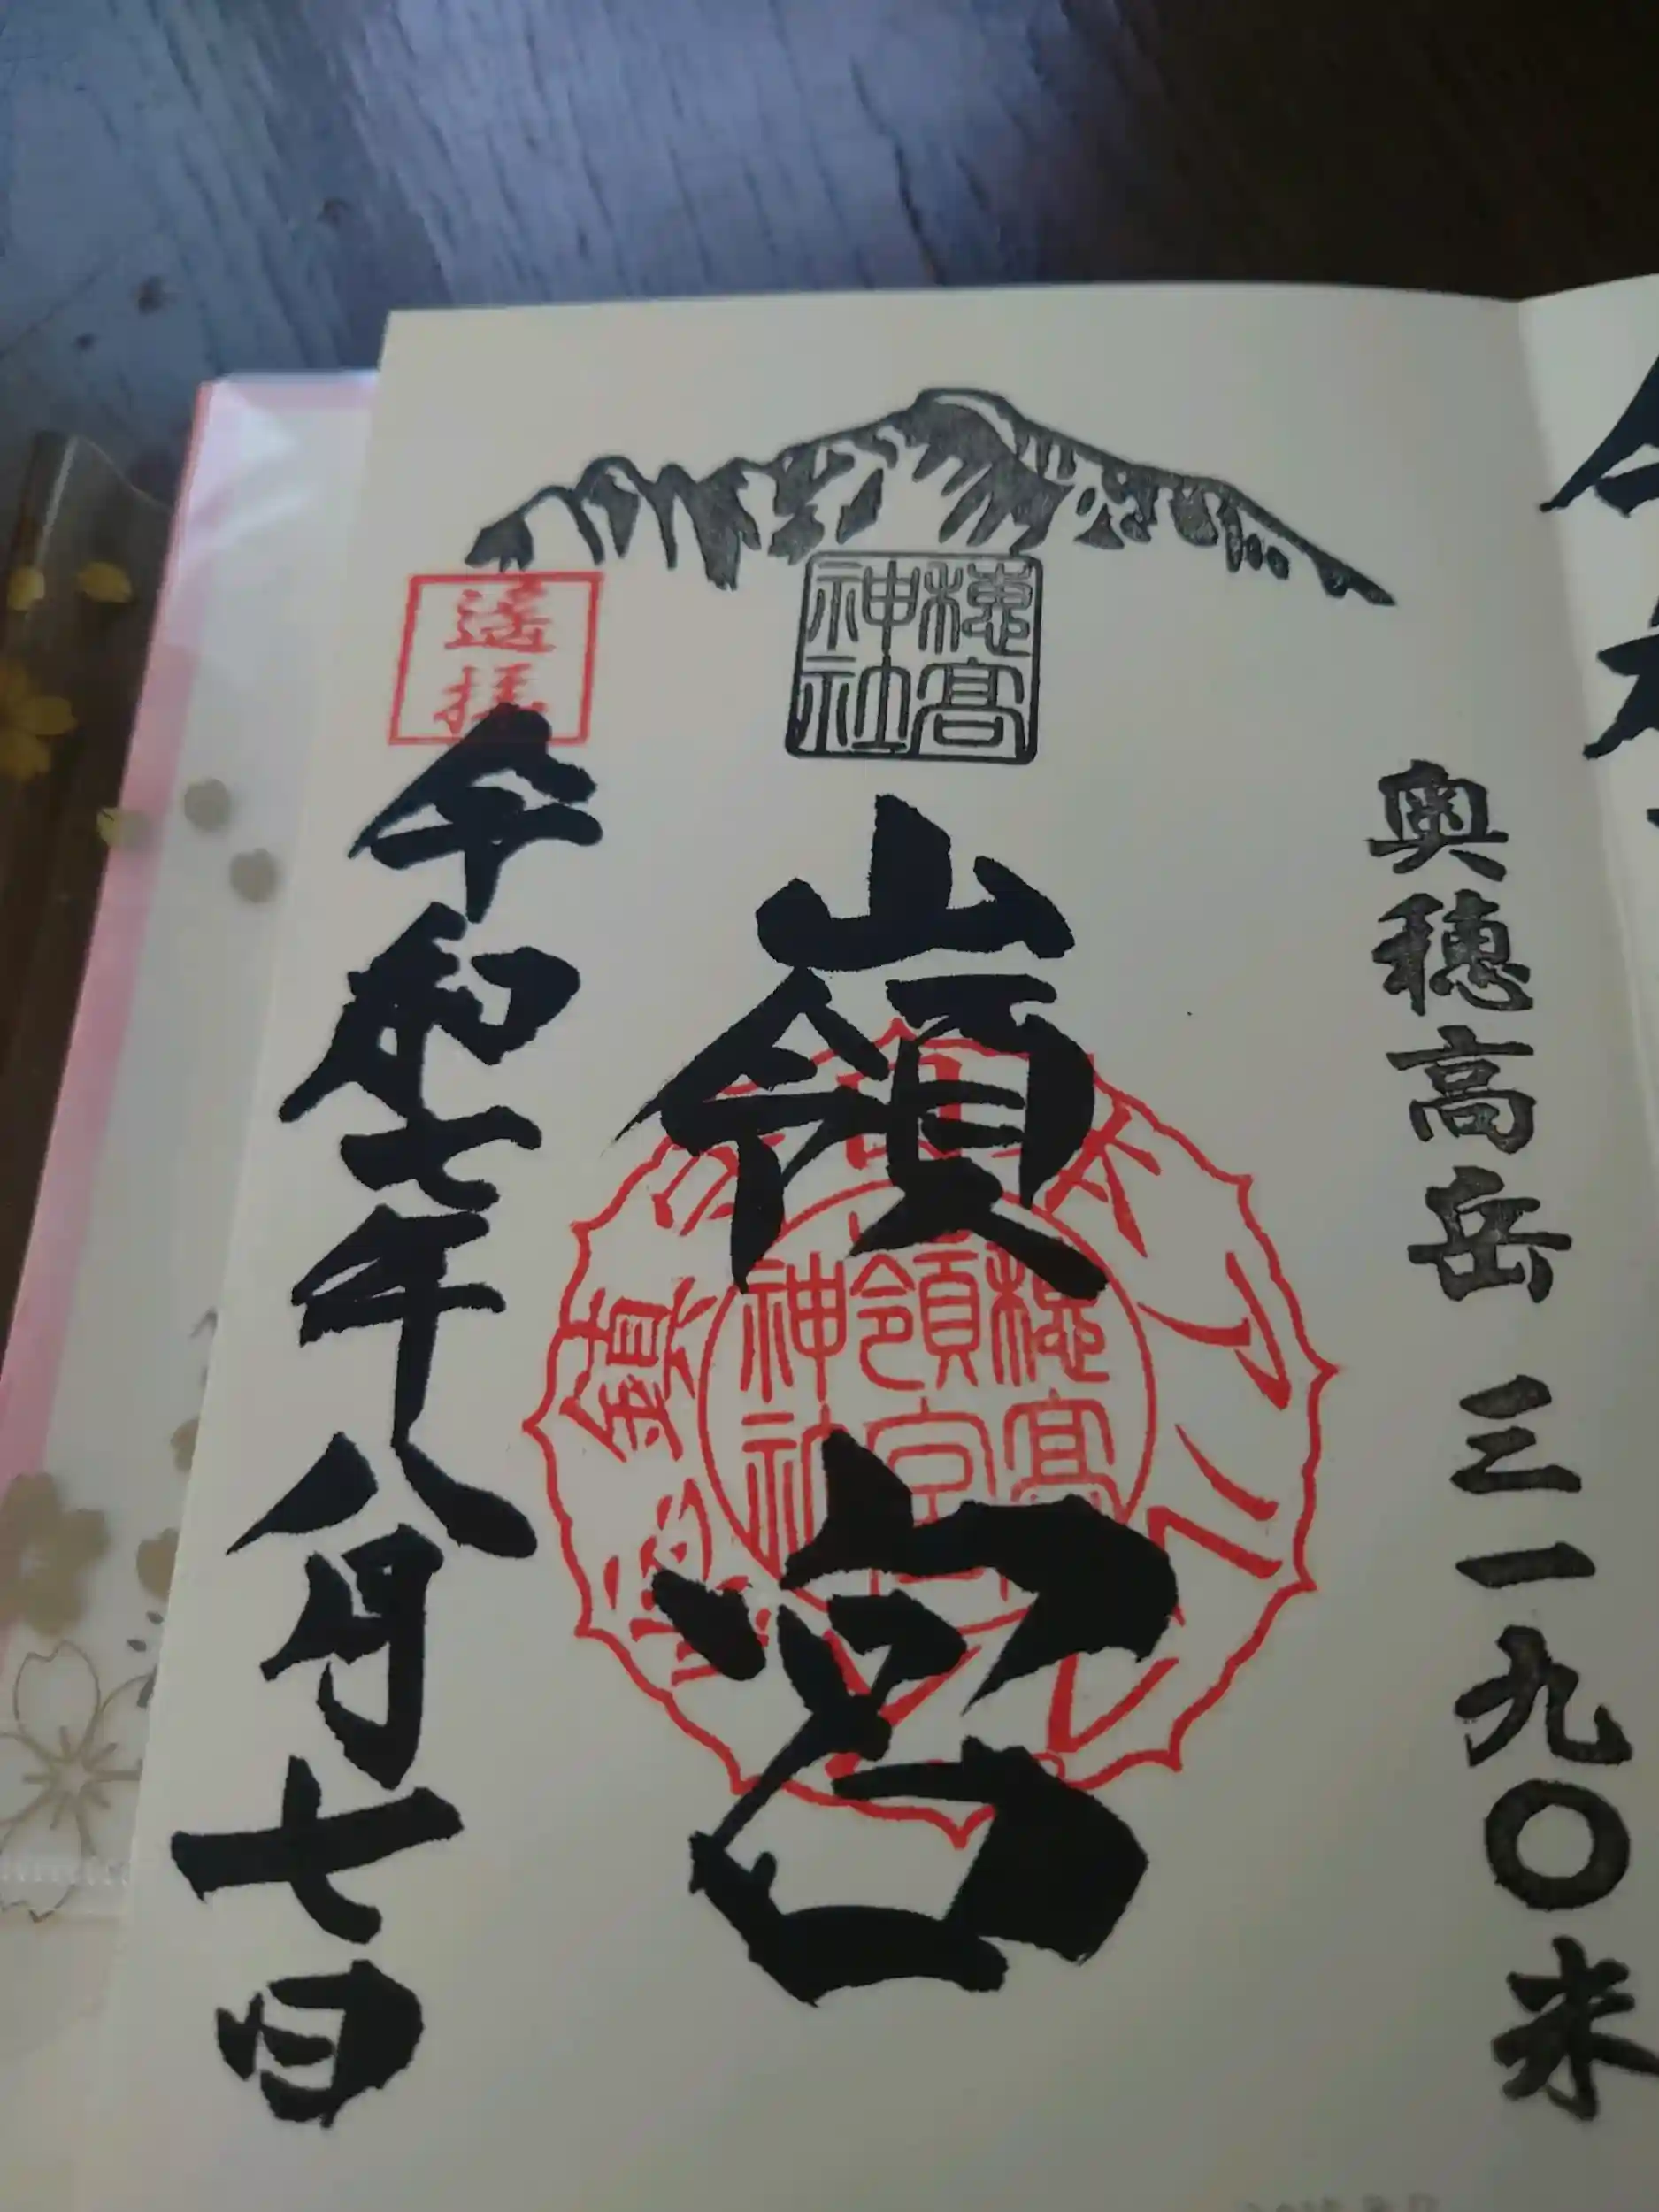 奥穂高岳 三一九〇米
穂高
神社
嶺宮
日本アルプス
穂高
嶺宮
神社
遥拝
令和七年八月七日